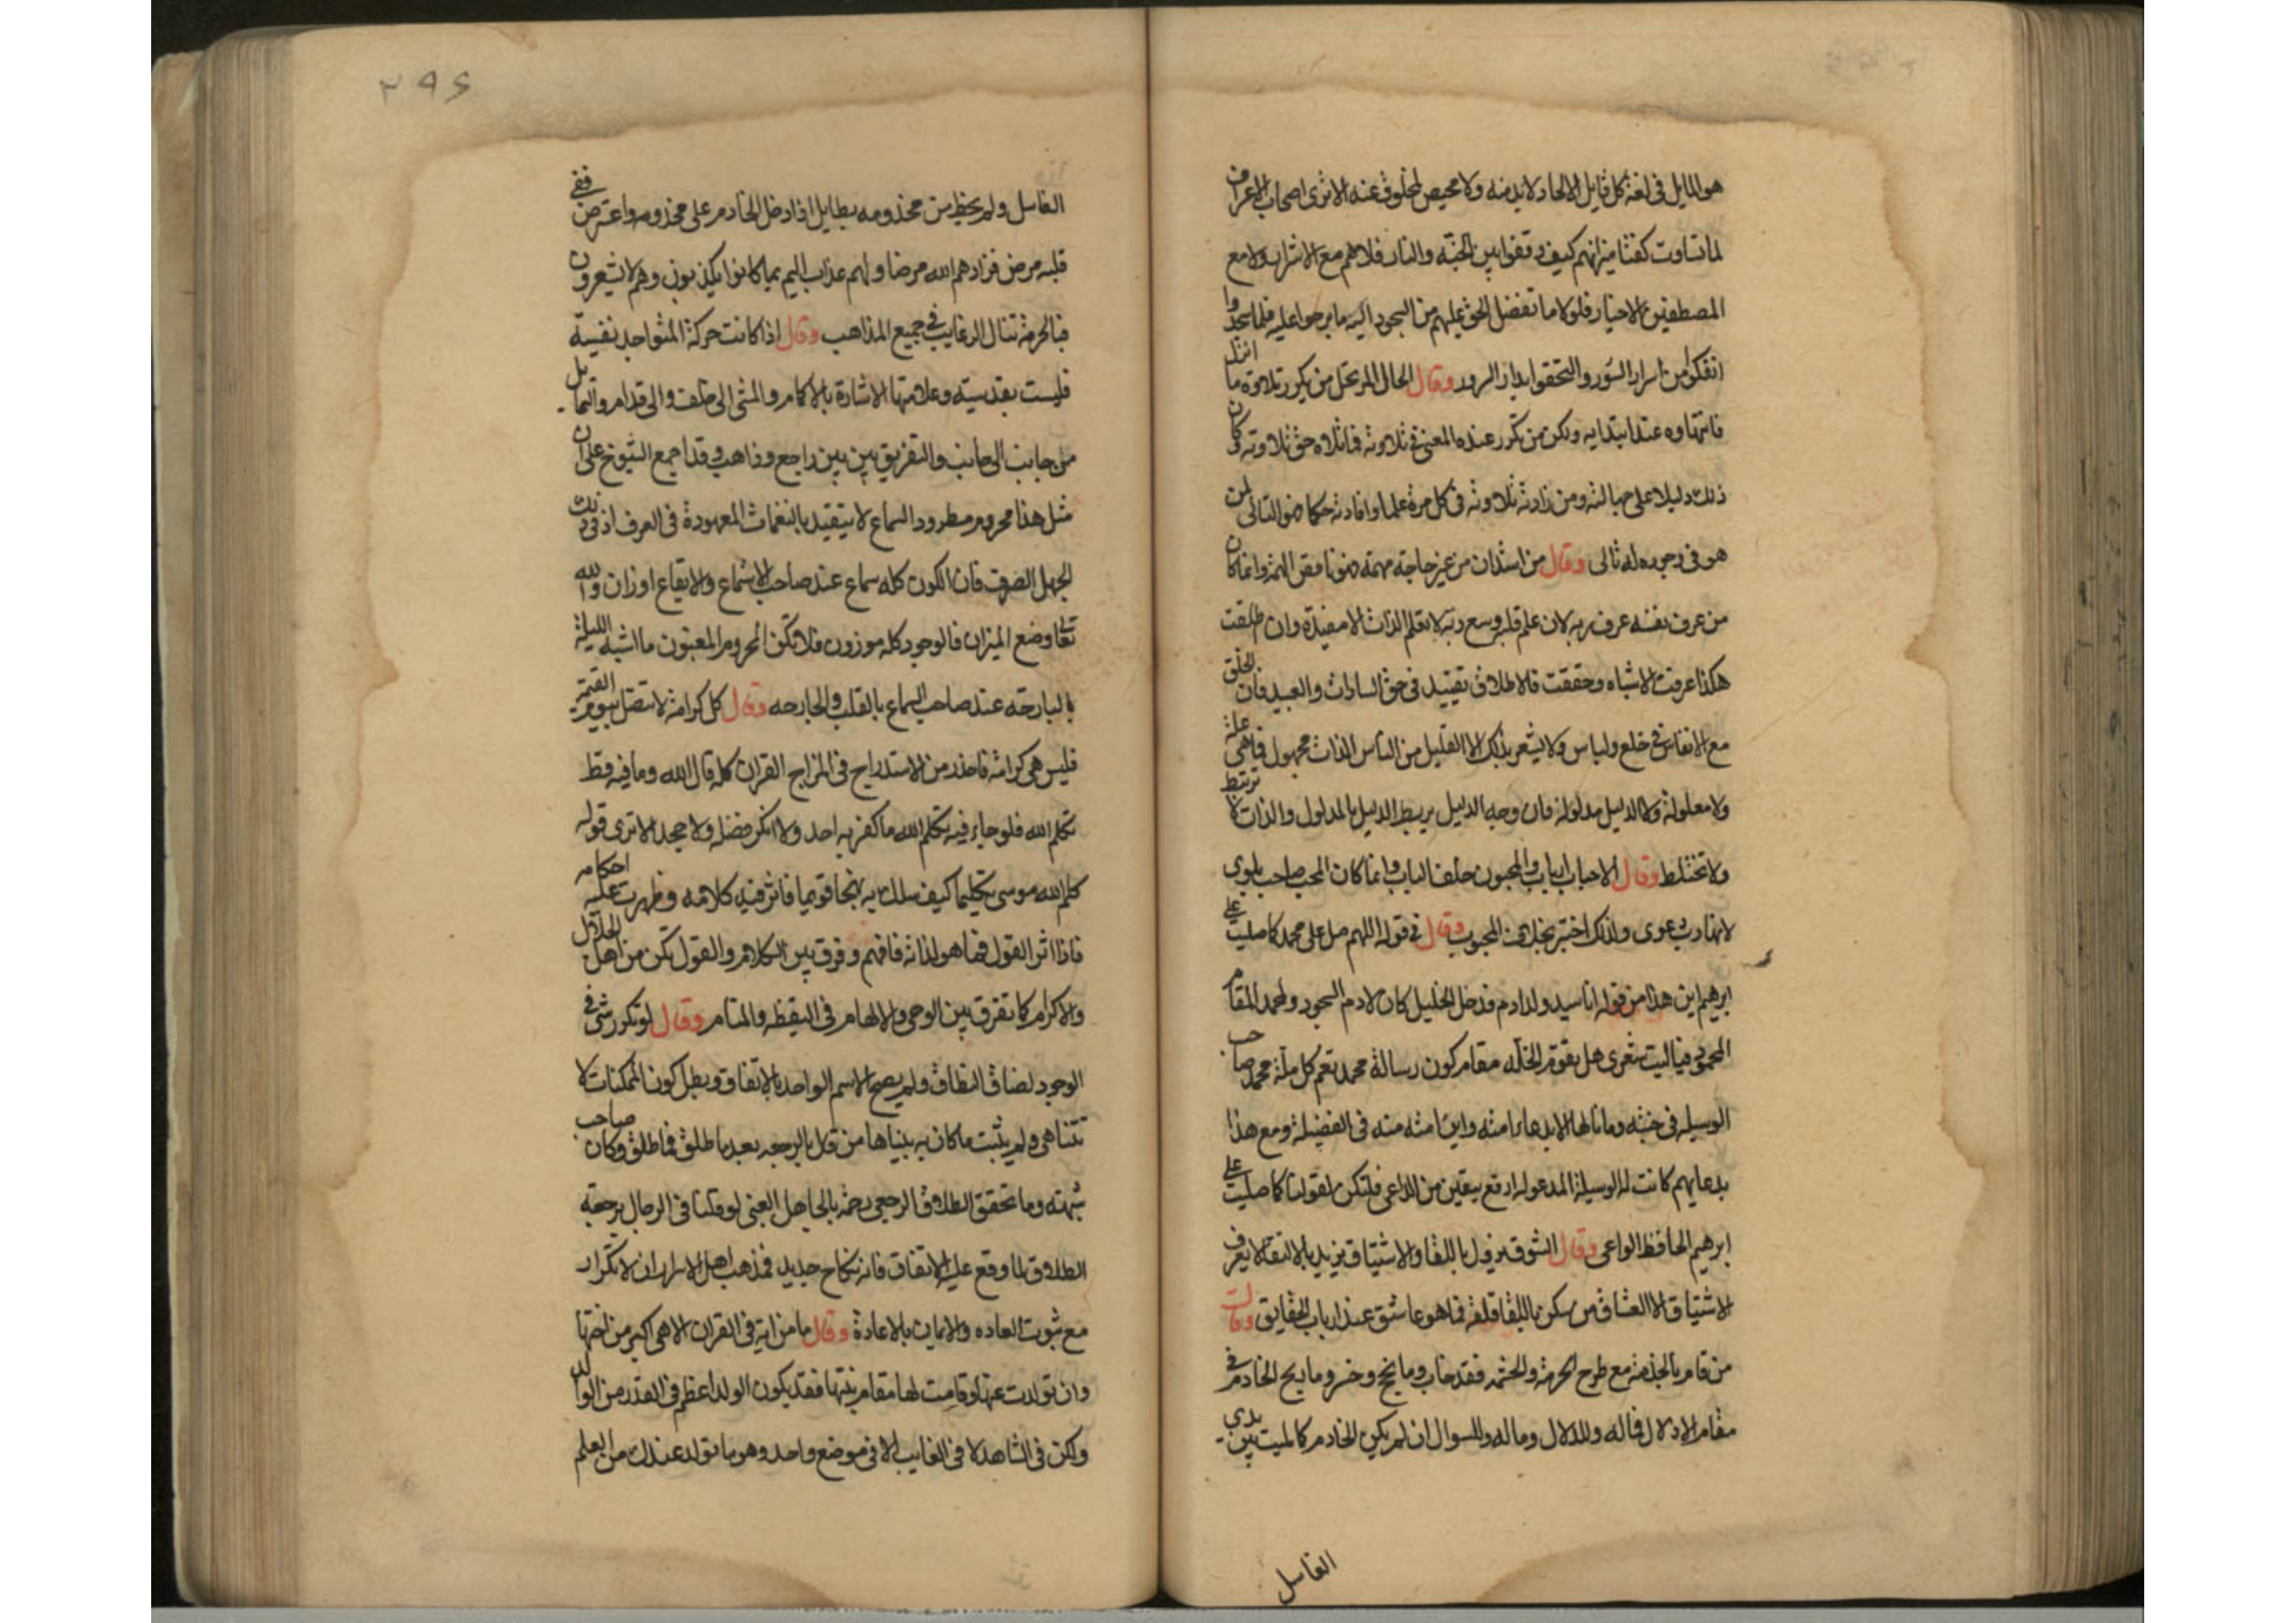 هو المايل فى لغة كل قايل الالحاد لابد منه ولا محيص لمخلوق عنه الا ترى اصحاب الاعراف
لما تساوت كفتا ميزانهم كيف وقفوا بين الجنة والنار فلا هم مع الاشرار ولا مع
المصطفين الاخيار فلولا ما تفضل الحق عليهم من السجود اليه ما برحوا عليه فلما سجدوا
انفكوا من اسرار السور والتحقوا بدار السرور وقال الحال المرتحل من يكرر تلاوة ما انزل
فانتهاوه عند ابتدايه ولكن من تكرر عنده المعنى فى تلاوته فما تلاه حق تلاوته وكان
ذلك دليلا على جهالته ومن زادته تلاوته فى كل مرة علما وافادته حكما فهو التالى لمن
هو فى وجوده له تالى وقال من استدان من غير حاجة مهمة فهو ناقص الهمة وانما كان
من عرف نفسه عرف ربه لان علم قلبه وسع ربه لا تعلم الذات الا مقيدة وان اطلقت
هكذا عرفت الاشياه وحققت فالاطلاق تقييد فى حق السادات والعبيد فان الخلق
مع الانفاس فى خلع ولباس ولا يشعر بذلك الا القليل من الناس الذات مجهول فما هى علة
ولا معلولة ولا الدليل مدلولة فان وجه الدليل يربط الدليل بالمدلول والذات لا ترتبط
ولا تختلط وقال الاحباب ارباب والمحبون خلف الباب وانما كان المحب صاحب بلوى
لانه ادب دعوى ولذلك اختبر بخلاف المحبوب وقال فى قوله اللهم صل على محمد كما صليت على
ابرهيم اين هذا من قوله انا سيد ولد ادم فدخل الخليل كان لادم السجود ولمحمد المقام
المحمود فيا ليت شعرى هل يقوم الخلة مقام كون رسالة محمد تعم كل ملة محمد صاحب
الوسيلة فى جنته وما نالها الا بدعاء امته واين امته منه فى الفضيلة ومع هذا
بدعايهم كانت له الوسيلة المدعو له ارفع بيقين من الداعى فلتكن لقولنا كما صليت على
ابرهيم الحافظ الواعى وقال الشوق يزول باللقا والاشتياق يزيد بالالتقا لا يعرف
الاشتياق الا العشاق من سكن باللقا قلقه فما هو عاشق عند ارباب الحقايق وقال
من قام بالخدمة مع طرح الحرمة والحشمة فقد خاب وما نجح وخسر وما ربح الخادم فى
مقام الاذلال فما له وللدلال وما له وللسوال ان لم يكن الخادم كالميت بين يدى
الغاسل
٢٩٤
الغاسل ولم يحظ من مخدومه بطايل اذا دخل الخادم على مخدومه واعترض ففى
قلبه مرض فزادهم الله مرضا ولهم عذاب اليم بما كانوا يكذبون وهم لا يشعرون
فبالحرمة تنال الرغايب فى جميع المذاهب وقال اذا كانت حركة المتواجد نفسية
فليست بقدسية وعلامتها الاشارة بالاكمام والمشى الى خلف والى قدام والتمايل
من جانب الى جانب والتفريق بين بين راجع وذاهب وقد اجمع الشيوخ على ان
مثل هذا محروم مطرود السماع لا يتقيد بالنغمات المعهودة فى العرف اذ فى ذلك
الجهل الصرف فان الكون كله سماع عند صاحب الاسماع والايقاع اوزان والله
تعالى وضع الميزان فالوجود كله موزون فلا تكن المحروم المغبون ما اشبه الليلة
بالبارحه عند صاحب السماع بالقلب والجارحه وقال كل كرامة لا تتصل بيوم القيمة
فليس هى كرامة فاحذر من الاستدراج فى المزاج القران كله قال الله وما فيه قط
تكلم الله فلو جاء فيه تكلم الله ما كفر به احد ولا انكر فضله ولا جحد الا ترى قوله
كلم الله موسى تكليما كيف سلك به نهجا قويما فاثر فيه كلامه وظهرت عليه احكامه
فاذا اثر القول فما هو لذاته فافهم وفرق بين الكلام والقول تكن من اهل الجلال
والاكرام كما تفرق بين الوحى والالهام فى اليقظه والمنام وقال لو تكرر شى فى
الوجود لضاق النطاق ولم يصح الاسم الواحد بالاتفاق وبطل كون الممكنات لا
تتناهى ولم يثبت ما كان به يتباها من قال بالرجعه بعد ما طلق فما طلق وكان صاحب
شبهته وما تحقق الطلاق الرجعى رحمة بالجاهل الغبى لو قلنا فى الرجال برجعة
الطلاق لما وقع عليه الاتفاق فانه نكاح جديد فمذهب اهل الاسرار ان لا تكرار
مع ثبوت العاده والايمان بالاعادة وقال ما من اية فى القران الا هى اكبر من اختها
وان تولدت عنها وقامت لها مقام بنتها فقد يكون الولد اعظم فى القدر من الوالد
ولكن فى الشاهد لا فى الغايب الا فى موضع واحد وهو ما تولد عندك من العلم